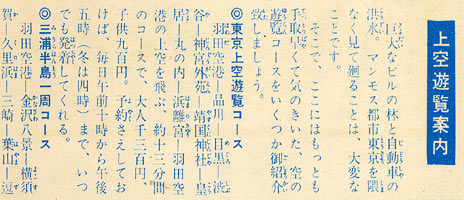 上空遊覧案内
巨大なビルの林と自動車の
洪水。マンモス都市東京を隈
なく見て廻ることは、大変な
ことです。
そこで、ここにはもっとも
手取早くて気のきいた、空の
遊覧コースをいくつか御紹介
致しましょう。
◎東京上空遊覧コース
羽田空港―品川―目黒―渋
谷―神宮外苑―靖国神社―皇
居―丸の内―浜離宮―羽田空
港の上空を飛ぶ、約十三分間
のコースで、大人千三百円、
子供九百円。予約さえしてお
けば、毎日午前十時から午後
五時（冬は四時）まで、いつ
でも発着してくれる。
◎三浦半島一周コース
羽田空港―金沢八景―横須
賀―久里浜―三崎―葉山―逗